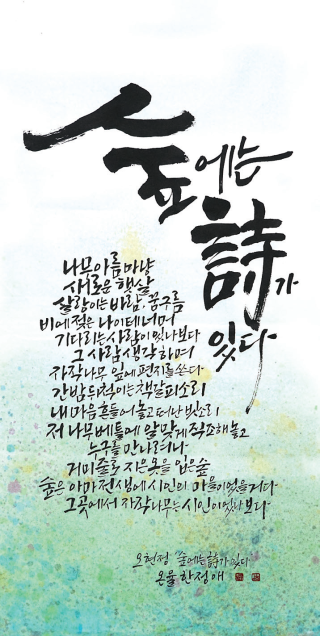 숲에는
詩가
있다
나뭇아름마냥
새로운 햇살
살랑이는 바람, 꿈구름
비에 젖은 나이테 너머
기다리는 사람이 있나보다
그 사람 생각하며
자작나무 잎에 편지를 쓴다
간밤 뒤척이는 책갈피 소리
내 마음 흔들어 놓고 떠난 빗소리
저 나무 베틀에 알맞게 직조해 놓고
누구를 만나려나
거미줄로 지은 옷을 입은 숲
숲은 아마 전생에 시인의 마을이었을 거다
그곳에서 자작나무는 시인이었나보다
오현정 '숲에는 詩가 있다
온율 한정애